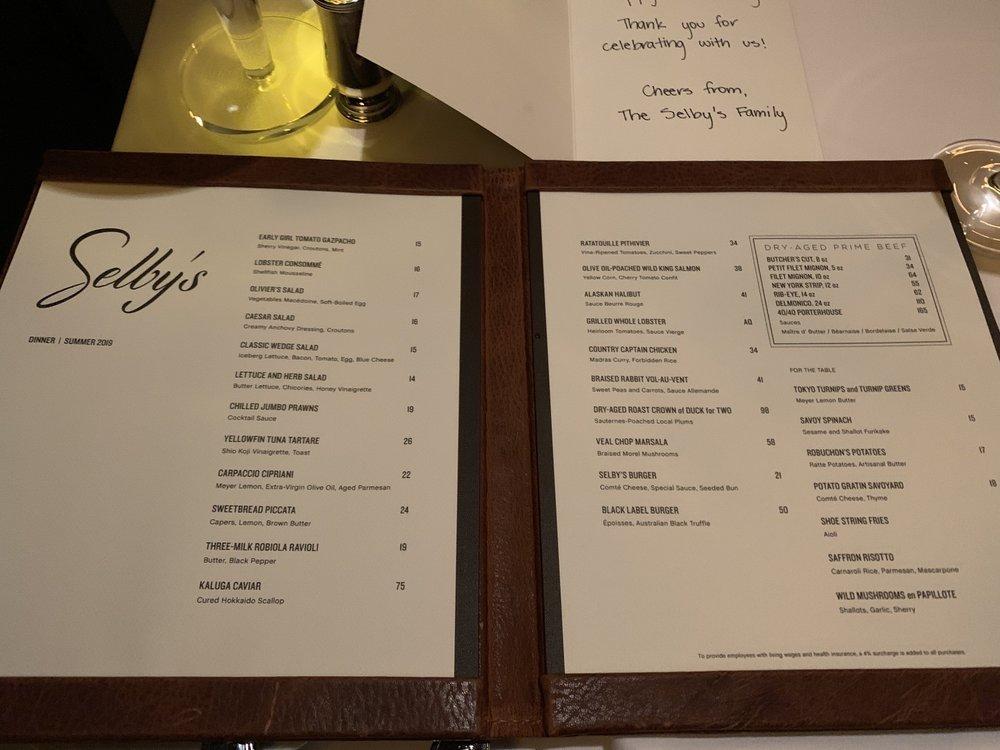 Thank you for
celebrating with us!
Cheers from,
The Selby's Family
Selby's
DINNER | SUMMER 2019
EARLY GIRL TOMATO GAZPACHO 15
Sherry Vinegar, Croutons, Mint
LOBSTER CONSOMMÉ 16
Shellfish Mousseline
OLIVIER'S SALAD 17
Vegetables Macédoine, Soft-Boiled Egg
CAESAR SALAD 16
Creamy Anchovy Dressing, Croutons
CLASSIC WEDGE SALAD 15
Iceberg Lettuce, Bacon, Tomato, Egg, Blue Cheese
LETTUCE AND HERB SALAD 14
Butter Lettuce, Chicories, Honey Vinaigrette
CHILLED JUMBO PRAWNS 19
Cocktail Sauce
YELLOWFIN TUNA TARTARE 26
Shio Koji Vinaigrette, Toast
CARPACCIO CIPRIANI 22
Meyer Lemon, Extra-Virgin Olive Oil, Aged Parmesan
SWEETBREAD PICCATA 24
Capers, Lemon, Brown Butter
THREE-MILK ROBIOLA RAVIOLI 19
Butter, Black Pepper
KALUGA CAVIAR 75
Cured Hokkaido Scallop
RATATOUILLE PITHIVIER 34
Vine-Ripened Tomatoes, Zucchini, Sweet Peppers
OLIVE OIL-POACHED WILD KING SALMON 38
Yellow Corn, Cherry Tomato Confit
ALASKAN HALIBUT 41
Sauce Beurre Rouge
GRILLED WHOLE LOBSTER AQ
Heirloom Tomatoes, Sauce Vierge
COUNTRY CAPTAIN CHICKEN 34
Madras Curry, Forbidden Rice
BRAISED RABBIT VOL-AU-VENT 41
Sweet Peas and Carrots, Sauce Allemande
DRY-AGED ROAST CROWN of DUCK for TWO 98
Sauternes-Poached Local Plums
VEAL CHOP MARSALA 58
Braised Morel Mushrooms
SELBY'S BURGER 21
Comté Cheese, Special Sauce, Seeded Bun
BLACK LABEL BURGER 50
Époisses, Australian Black Truffle
DRY-AGED PRIME BEEF
BUTCHER'S CUT, 8 oz 31
PETIT FILET MIGNON, 5 oz 34
FILET MIGNON, 10 oz 64
NEW YORK STRIP, 12 oz 55
RIB-EYE, 14 oz 62
DELMONICO, 24 oz 110
40/40 PORTERHOUSE 165
Sauces
Maître d' Butter / Béarnaise / Bordelaise / Salsa Verde
FOR THE TABLE
TOKYO TURNIPS and TURNIP GREENS 15
Meyer Lemon Butter
SAVOY SPINACH 15
Sesame and Shallot Furikake
ROBUCHON'S POTATOES 17
Ratte Potatoes, Artisanal Butter
POTATO GRATIN SAVOYARD 18
Comté Cheese, Thyme
SHOE STRING FRIES
Aioli
SAFFRON RISOTTO
Carnaroli Rice, Parmesan, Mascarpone
WILD MUSHROOMS en PAPILLOTE
Shallots, Garlic, Sherry
To provide employees with living wages and health insurance, a 4% surcharge is added to all purchases.